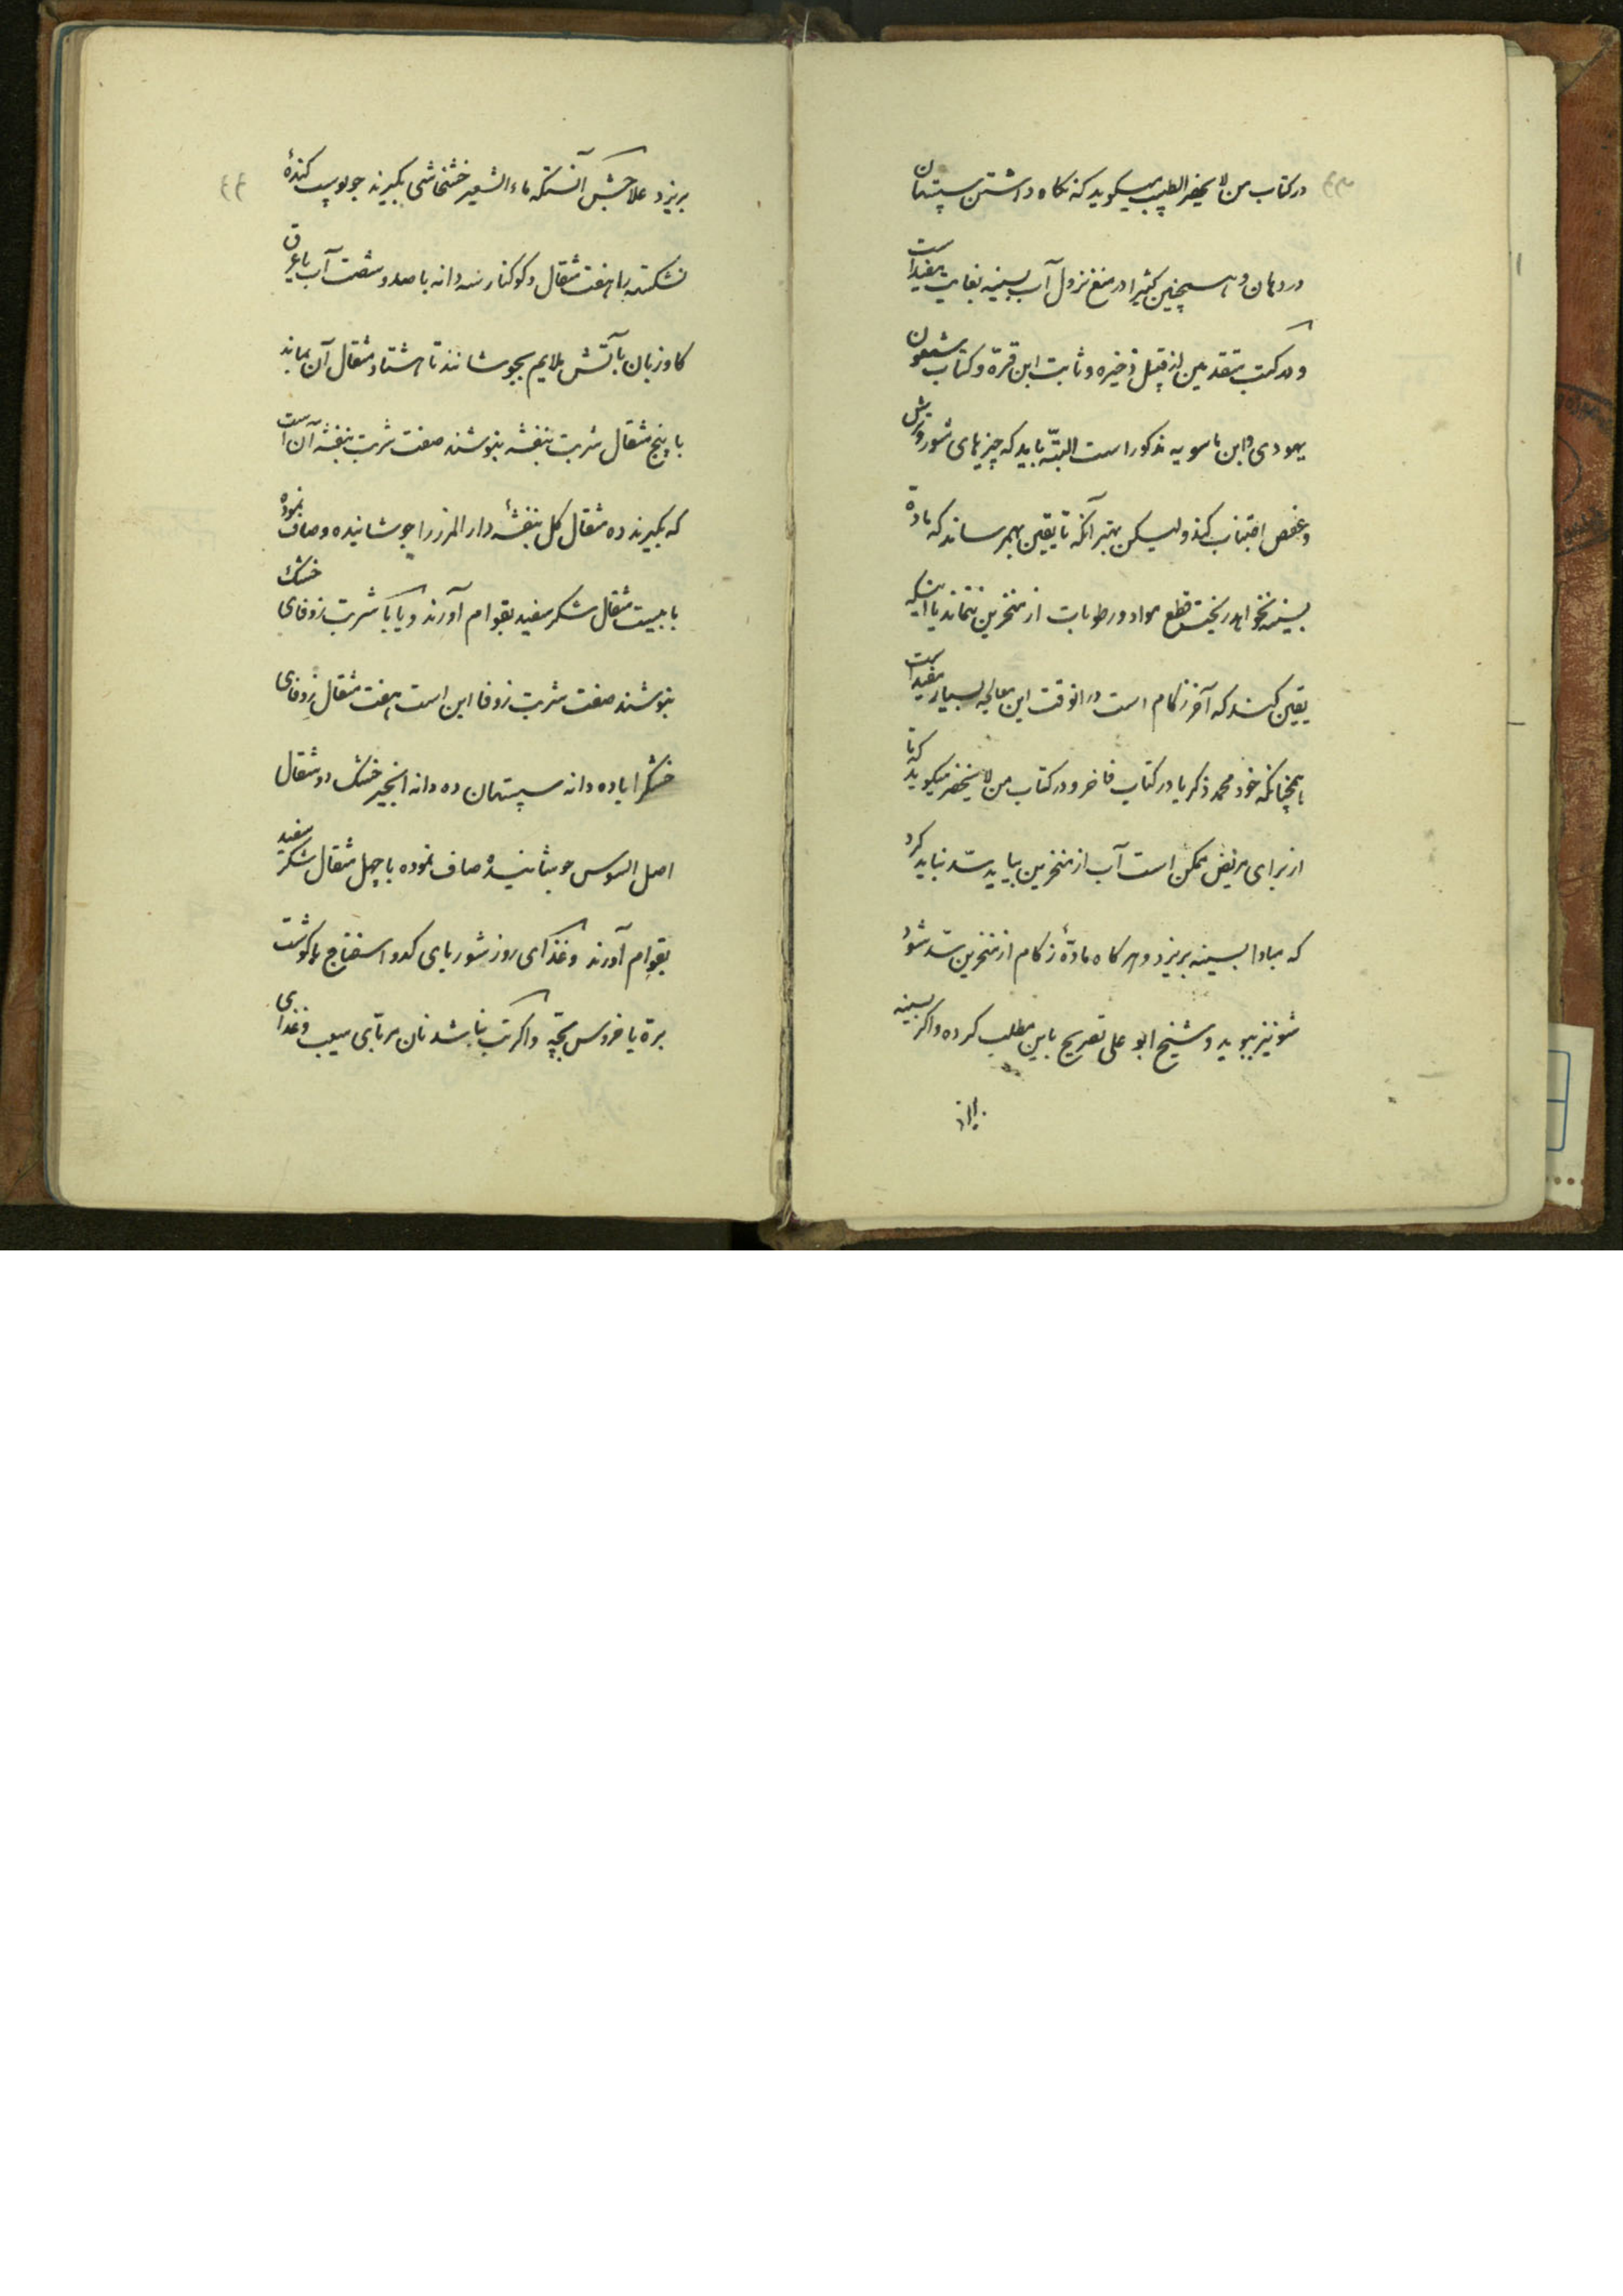 در کتاب من لا یحضر الطبیب میکوید که نکاه داشتن سپستان
در دهان و همچنین کثیرا در منع نزول آب بسینه بغایت مفید است
و در کتب متقدمین از قبیل ذخیره و ثابت ابن قرّة و کتاب شمعون
یهودی و ابن ماسویه مذکور است البتّه باید که چیزهای شور و ترش
و عفص اجتناب کند ولیکن بهتر آنکه تا یقین بهم رساند که مادّه
بسینه نخواهد ریخت قطع مواد و رطوبات از منخرین نتماند یا اینکه
یقین کند که آخر زکام است در آنوقت این معالجه بسیار مفید است
همچنانکه خود محمد ذکریا در کتاب فاخر و در کتاب من لا یحضر میکوید که تا
از برای مریض ممکن است آب از منخرین بیاید سدّ نباید کرد
که مبادا بسینه بریزد و هر کاه مادّهٔ زکام از منخرین سدّ شود
شونیز ببوید و شیخ ابو علی تصریح باین مطلب کرده و اکر بسینه
بریزد
۴۴
بریزد علاجش آنستکه ماء الشعیر خشخاشی بکیرند جو پوست کندهٔ
نشکسته را هفت مثقال و کوکنار سه دانه با صد و شصت آب یا عرق
کاوزبان بآتش ملایم بجوشانند تا هشتاد مثقال آن بماند
با پنج مثقال شربت بنفشه بنوشند صفت شربت بنفشه آن است
که بکیرند ده مثقال کل بنفشهٔ دار المرز را جوشانیده و صاف نموده
با بیست مثقال شکر سفید بقوام آورند و یا با شربت زوفای خشک
بنوشند صفت شربت زوفا این است هفت مثقال زوفای
خشک را با ده دانه سپستان ده دانه انجیر خشک دو مثقال
اصل السوس جوشانیده صاف نموده با چهل مثقال شکر سفید
بقوام آورند و غذای روز شوربای کدو اسفناج با کوشت
برّه یا خروس بچّه و اکر تب نباشد نان مربّای سیب و غذای